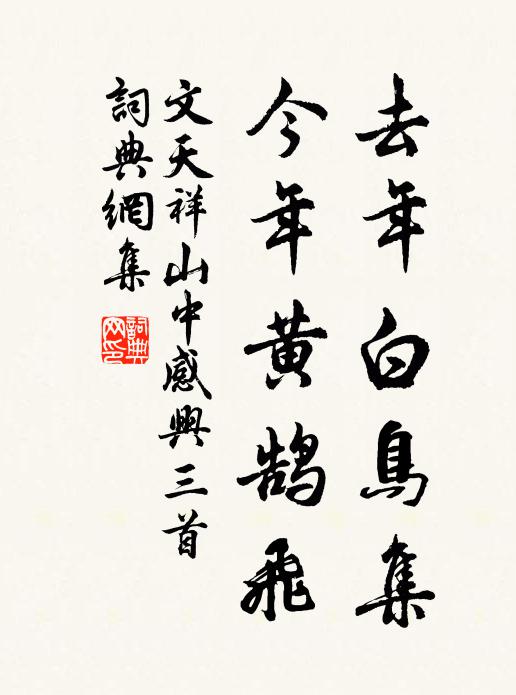 去年白鳥集
今年黃鵠飛
文天祥山中感興三首
詞典網集
詞典網印